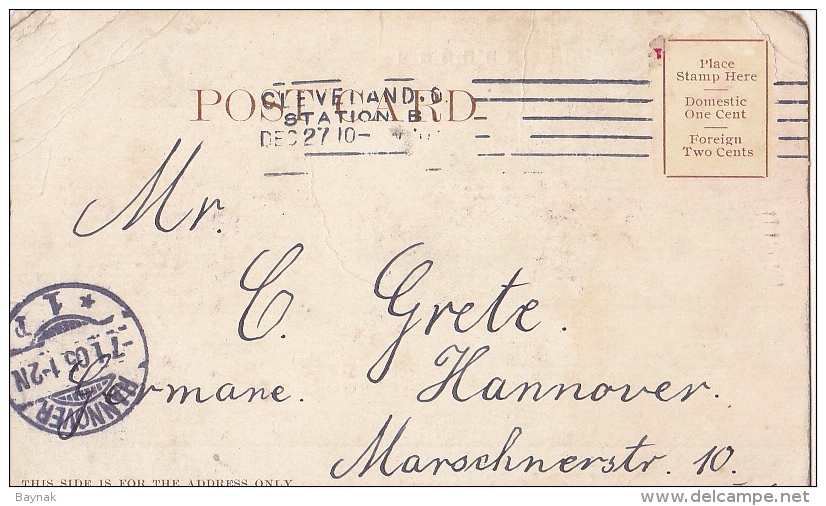 POST CARD
CLEVELAND. O.
STATION B
DEC 27 10-
Place
Stamp Here
Domestic
One Cent
Foreign
Two Cents
Mr.
C. Grete.
Germane. Hannover.
Marschnerstr. 10.
HANNOVER
* 1 P
-7.1.05.1-2N
THIS SIDE IS FOR THE ADDRESS ONLY
Baynak
delcampe.net